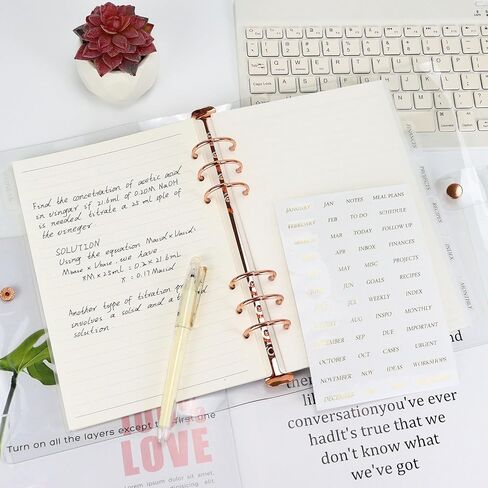 Find the concetration of acetic acid
in vingar if 21.6ml of 0.20M NaOH
is needed titrate a 25 ml iple of
the vineger
SOLUTION
Using the equation Macid x Vacid =
Mbase x Vbase, we have
xM x 25mL = 0.2 x 21.6mL
x = 0.17 Macid
Another type of titration
involves a solid and a
solution.
JANUARY JAN NOTES MEAL PLANS
FEBRUARY FEB TO DO SCHEDULE
MAR TODAY FOLLOW UP
APR INBOX FINANCES
MAY MISC PROJECTS
JUN GOALS RECIPES
JUL WEEKLY INDEX
AUGUST AUG INSPO MONTHLY
SEP DUE IMPORTANT
OCTOBER OCT CASES URGENT
NOVEMBER NOV IDEAS WORKSHOPS
DECEMBER
PROJECTS
RECIPES
INDEX
MONTHLY
Turn on all the layers except the first one
LOVE
like
conversation you've ever
hadIt's true that we
don't know what
we've got